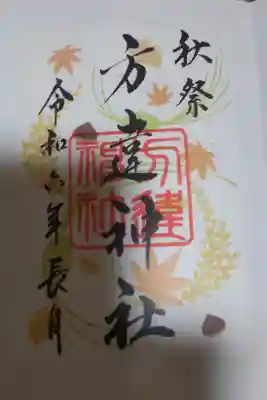 秋祭
方違神社
令和六年長月
方違
神社